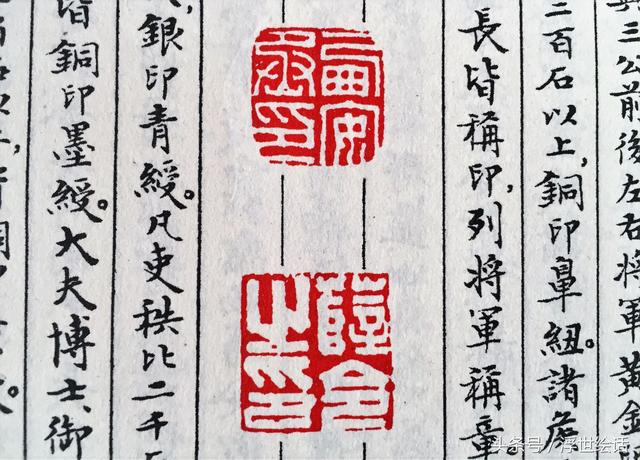 三公前後左右將軍黃金
二百石以上,銅印鼻紐。諸侯
長皆稱印,列將軍稱章
丞印
令之印
,銀印青綬。凡吏秩比二千
皆銅印墨綬。大夫博士、御
头条号/浮世绘话